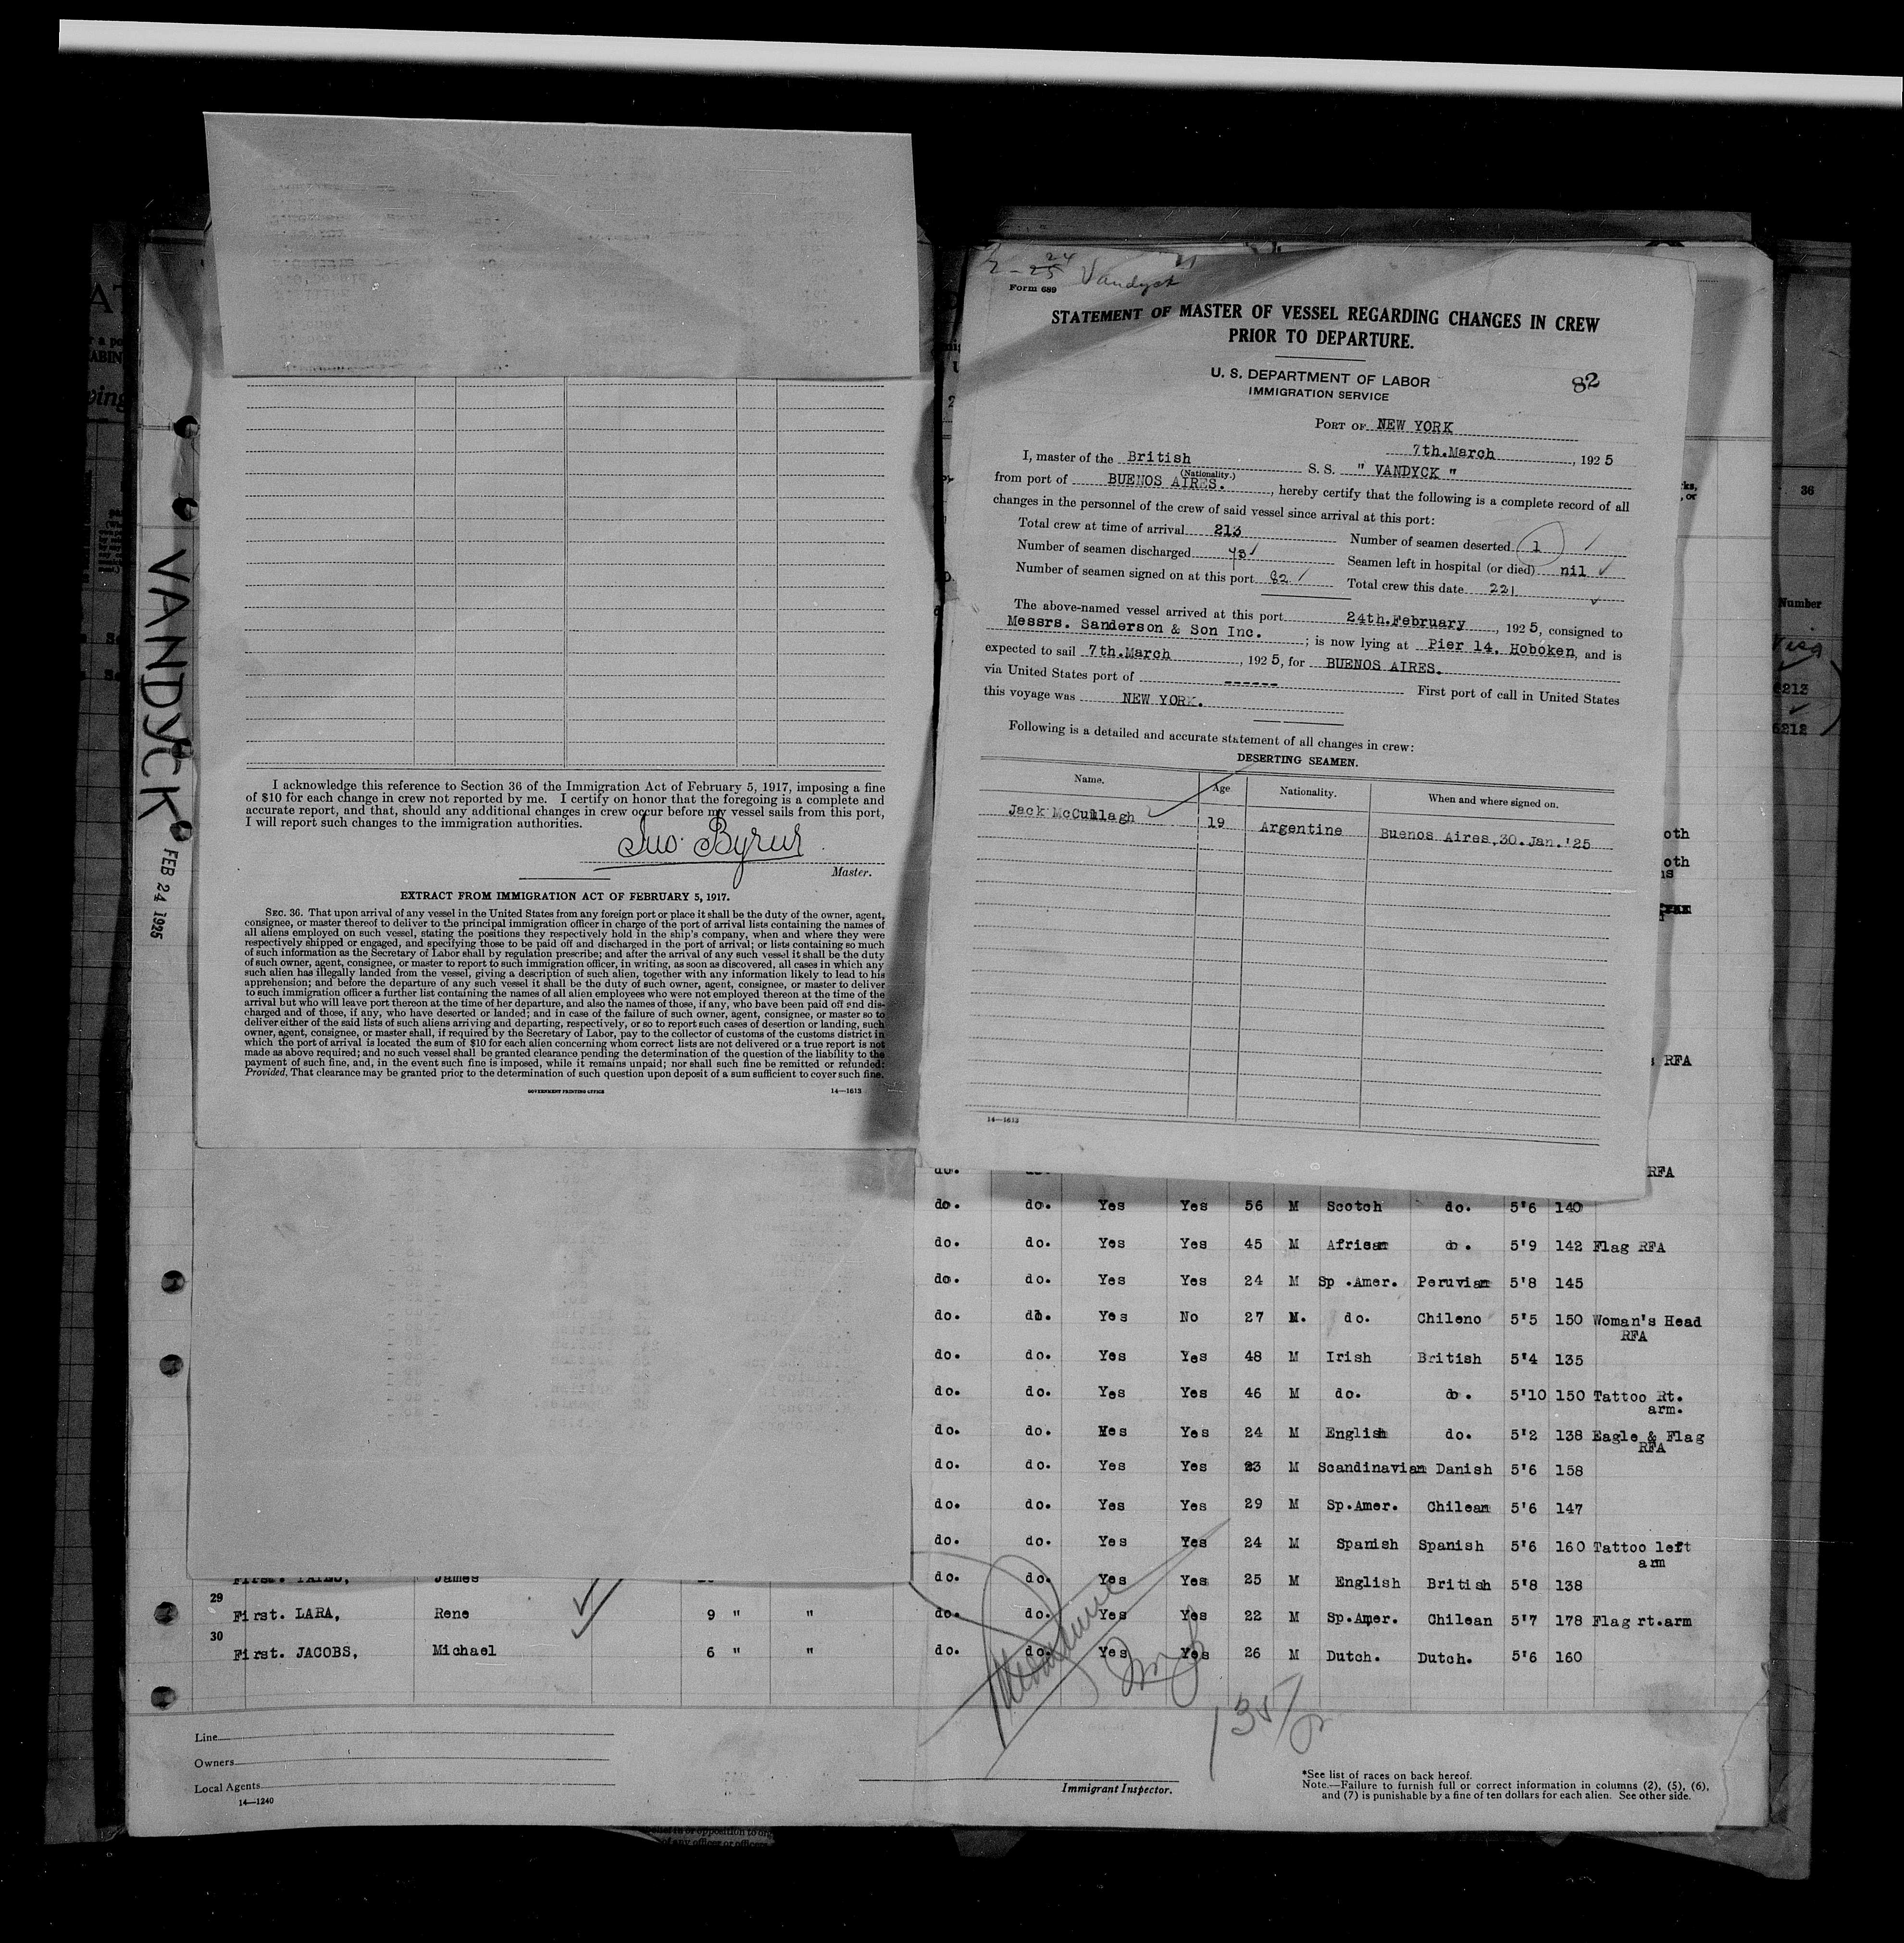 VANDYCK
FEB 24 1925
I acknowledge this reference to Section 36 of the Immigration Act of February 5, 1917, imposing a fine
of $10 for each change in crew not reported by me. I certify on honor that the foregoing is a complete and
accurate report, and that, should any additional changes in crew occur before my vessel sails from this port,
I will report such changes to the immigration authorities.
Master.
EXTRACT FROM IMMIGRATION ACT OF FEBRUARY 5, 1917.
SEC. 36. That upon arrival of any vessel in the United States from any foreign port or place it shall be the duty of the owner, agent,
consignee, or master thereof to deliver to the principal immigration officer in charge of the port of arrival lists containing the names of
all aliens employed on such vessel, stating the positions they respectively hold in the ship's company, when and where they were
respectively shipped or engaged, and specifying those to be paid off and discharged in the port of arrival; or lists containing so much
of such information as the Secretary of Labor shall by regulation prescribe; and after the arrival of any such vessel it shall be the duty
of such owner, agent, consignee, or master to report to such immigration officer, in writing, as soon as discovered, all cases in which any
such alien has illegally landed from the vessel, giving a description of such alien, together with any information likely to lead to his
apprehension; and before the departure of any such vessel it shall be the duty of such owner, agent, consignee, or master to deliver
to such immigration officer a further list containing the names of all alien employees who were not employed thereon at the time of the
arrival but who will leave port thereon at the time of her departure, and also the names of those, if any, who have been paid off and dis-
charged and of those, if any, who have deserted or landed; and in case of the failure of such owner, agent, consignee, or master so to
deliver either of the said lists of such aliens arriving and departing, respectively, or so to report such cases of desertion or landing, such
owner, agent, consignee, or master shall, if required by the Secretary of Labor, pay to the collector of customs of the customs district in
which the port of arrival is located the sum of $10 for each alien concerning whom correct lists are not delivered or a true report is not
made as above required; and no such vessel shall be granted clearance pending the determination of the question of the liability to the
payment of such fine, and, in the event such fine is imposed, while it remains unpaid; nor shall such fine be remitted or refunded:
Provided, That clearance may be granted prior to the determination of such question upon deposit of a sum sufficient to cover such fine.
GOVERNMENT PRINTING OFFICE 14—1613
Vandyck
Form 689
STATEMENT OF MASTER OF VESSEL REGARDING CHANGES IN CREW
PRIOR TO DEPARTURE.
U. S. DEPARTMENT OF LABOR
IMMIGRATION SERVICE
82
PORT OF NEW YORK
7th.March, 1925
I, master of the British S. S. " VANDYCK "
(Nationality.)
from port of BUENOS AIRES., hereby certify that the following is a complete record of all
changes in the personnel of the crew of said vessel since arrival at this port:
Total crew at time of arrival 213 Number of seamen deserted 1
Number of seamen discharged Seamen left in hospital (or died) nil
Number of seamen signed on at this port Total crew this date 221
The above-named vessel arrived at this port 24th.February, 1925, consigned to
Messrs. Sanderson & Son Inc.; is now lying at Pier 14, Hoboken, and is
expected to sail 7th.March, 1925, for BUENOS AIRES.
via United States port of ------ First port of call in United States
this voyage was NEW YORK.
Following is a detailed and accurate statement of all changes in crew:
DESERTING SEAMEN.
Name. Age Nationality. When and where signed on.
Jack McCullagh 19 Argentine Buenos Aires.30.Jan.'25
14—1613
36
Number
Visa
6212
RFA
RFA
do. do. Yes Yes 56 M Scotch do. 5'6 140
do. do. Yes Yes 45 M African do. 5'9 142 Flag RFA
do. do. Yes Yes 24 M Sp .Amer. Peruvian 5'8 145
do. do. Yes No 27 M. do. Chileno 5'5 150 Woman's Head
RFA
do. do. Yes Yes 48 M Irish British 5'4 135
do. do. Yes Yes 46 M do. do. 5'10 150 Tattoo Rt.
arm.
do. do. Yes Yes 24 M English do. 5'2 138 Eagle & Flag
RFA
do. do. Yes Yes 23 M Scandinavian Danish 5'6 158
do. do. Yes Yes 29 M Sp.Amer. Chilean 5'6 147
do. do. Yes Yes 24 M Spanish Spanish 5'6 160 Tattoo left
arm
James do. do. Yes Yes 25 M English British 5'8 138
29 First. LARA, Rene 9 " " do. do. Yes Yes 22 M Sp.Amer. Chilean 5'7 178 Flag rt.arm
30 First. JACOBS, Michael 6 " " do. do. Yes Yes 26 M Dutch. Dutch. 5'6 160
Line
Owners
Local Agents
14—1240
Immigrant Inspector.
*See list of races on back hereof.
Note.—Failure to furnish full or correct information in columns (2), (5), (6),
and (7) is punishable by a fine of ten dollars for each alien. See other side.